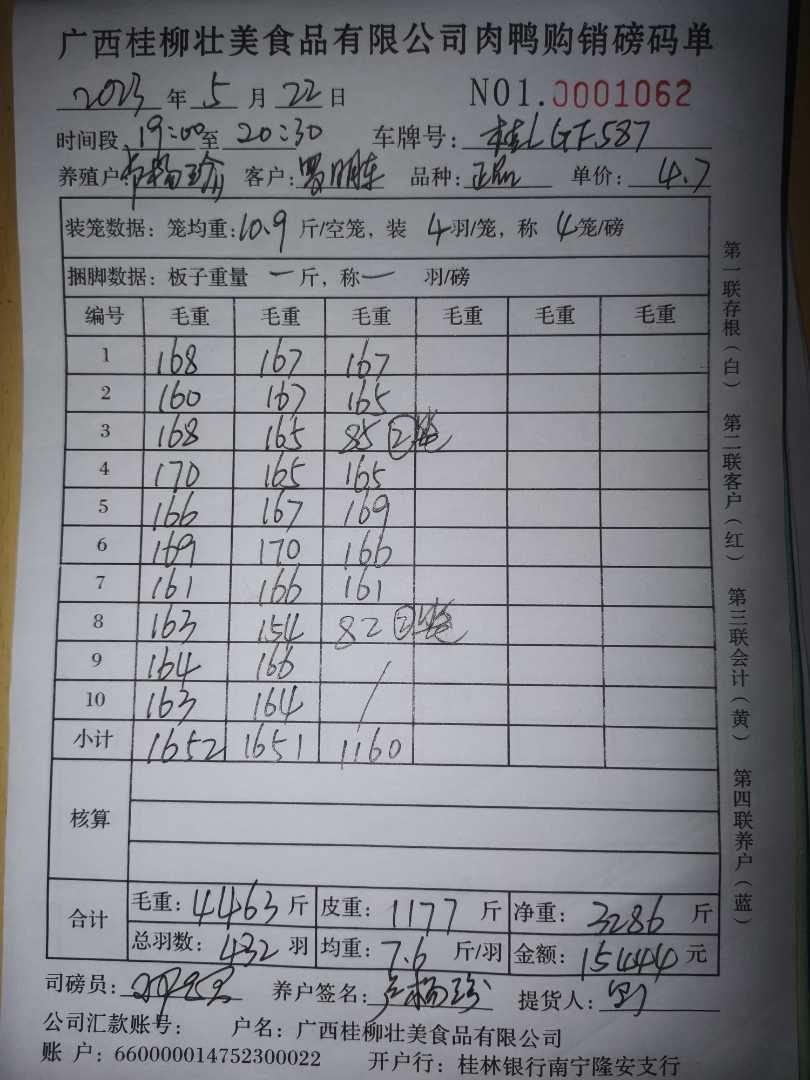 广西桂柳壮美食品有限公司肉鸭购销磅码单
2023 年 5 月 22 日 NO1.0001062
时间段 19:00 至 20:30 车牌号: 桂LGF587
养殖户: 客户: 罗明东 品种: 正品 单价: 4.7
装笼数据: 笼均重: 10.9 斤/空笼, 装 4 羽/笼, 称 4 笼/磅
捆脚数据: 板子重量 一 斤, 称 一 羽/磅
编号 毛重 毛重 毛重 毛重 毛重 毛重
1 168 167 167
2 160 167 165
3 168 165 85 ②笼
4 170 165 165
5 166 167 169
6 169 170 166
7 161 166 161
8 163 154 82 ②笼
9 164 166 /
10 163 164 /
小计 1652 1651 1160
核算
合计 毛重: 4463 斤 皮重: 1177 斤 净重: 3286 斤
总羽数: 432 羽 均重: 7.6 斤/羽 金额: 15444 元
司磅员: 养户签名: 提货人:
公司汇款账号: 户名: 广西桂柳壮美食品有限公司
账 户: 660000014752300022 开户行: 桂林银行南宁隆安支行
第一联存根(白) 第二联客户(红) 第三联会计(黄) 第四联养户(蓝)